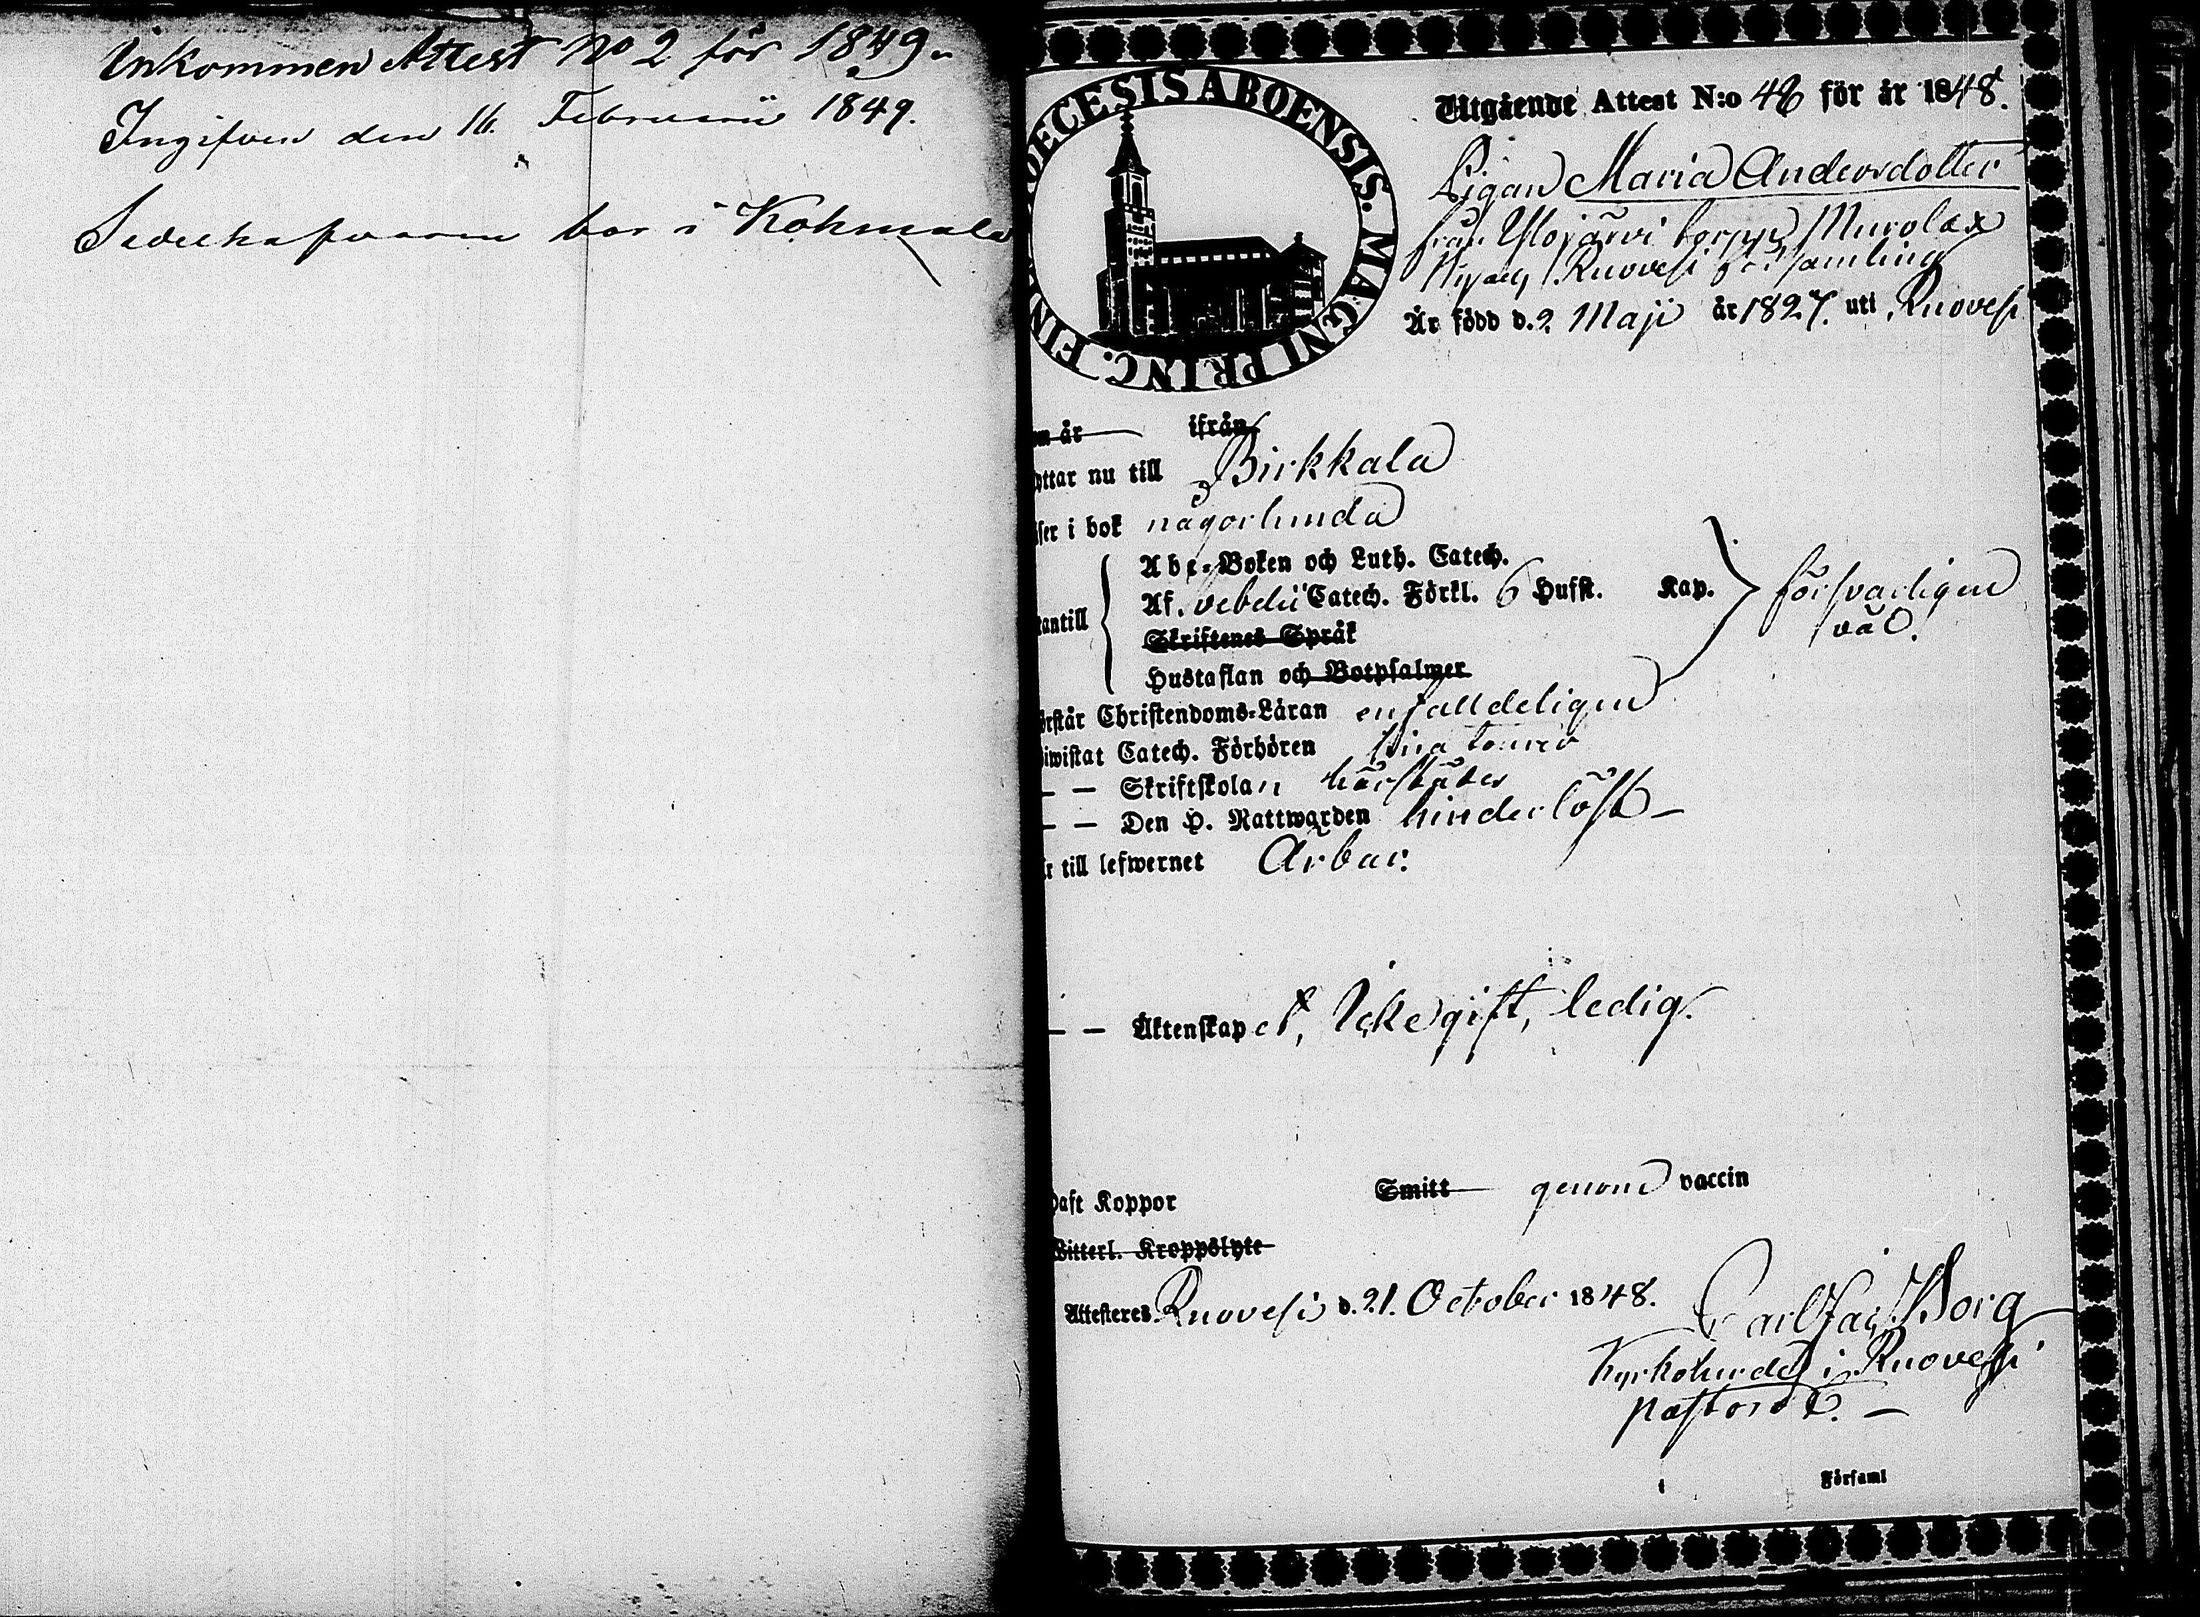 Inkommen Attest No 2 för 1849.
Ingifven den 16. Februarii 1849.
bor i Kohmala
DECESIS ABOENSIS. MAGNI PRINC. FIN
Utgående Attest N:o för år 1848.
Pigan Maria Andersdotter
från Ylöjärvi torp, Murolax
by af Ruovesi församling
Är född d. 2 Maji år 1827. uti Ruovesi
om år ifrån
yttar nu till Birkkala
iser i bok någorlunda
Abc-Boken och Luth. Catech.
Af Catech. Förkl. 6 Hufst. Kap. försvarligen
väl.
tantill
Skriftenes Språk
Hustaflan och Botpsalmer
örstår Christendoms-Läran enfalldeligen
iwistat Catech. Förhören sina
— — Skriftskolan härstädes
— — Den H. Nattwarden hinderlöst —
är till lefwernet Ärbar.
— — Äktenskapet, Icke gift, ledig.
Haft Koppor Smitt genom vaccin
Witterl. Kroppslyte
Attesteres Ruovesi d. 21. October 1848.
Carl Jac. Borg
Kyrkoherde i Ruovesi
pastorat. —
Församl